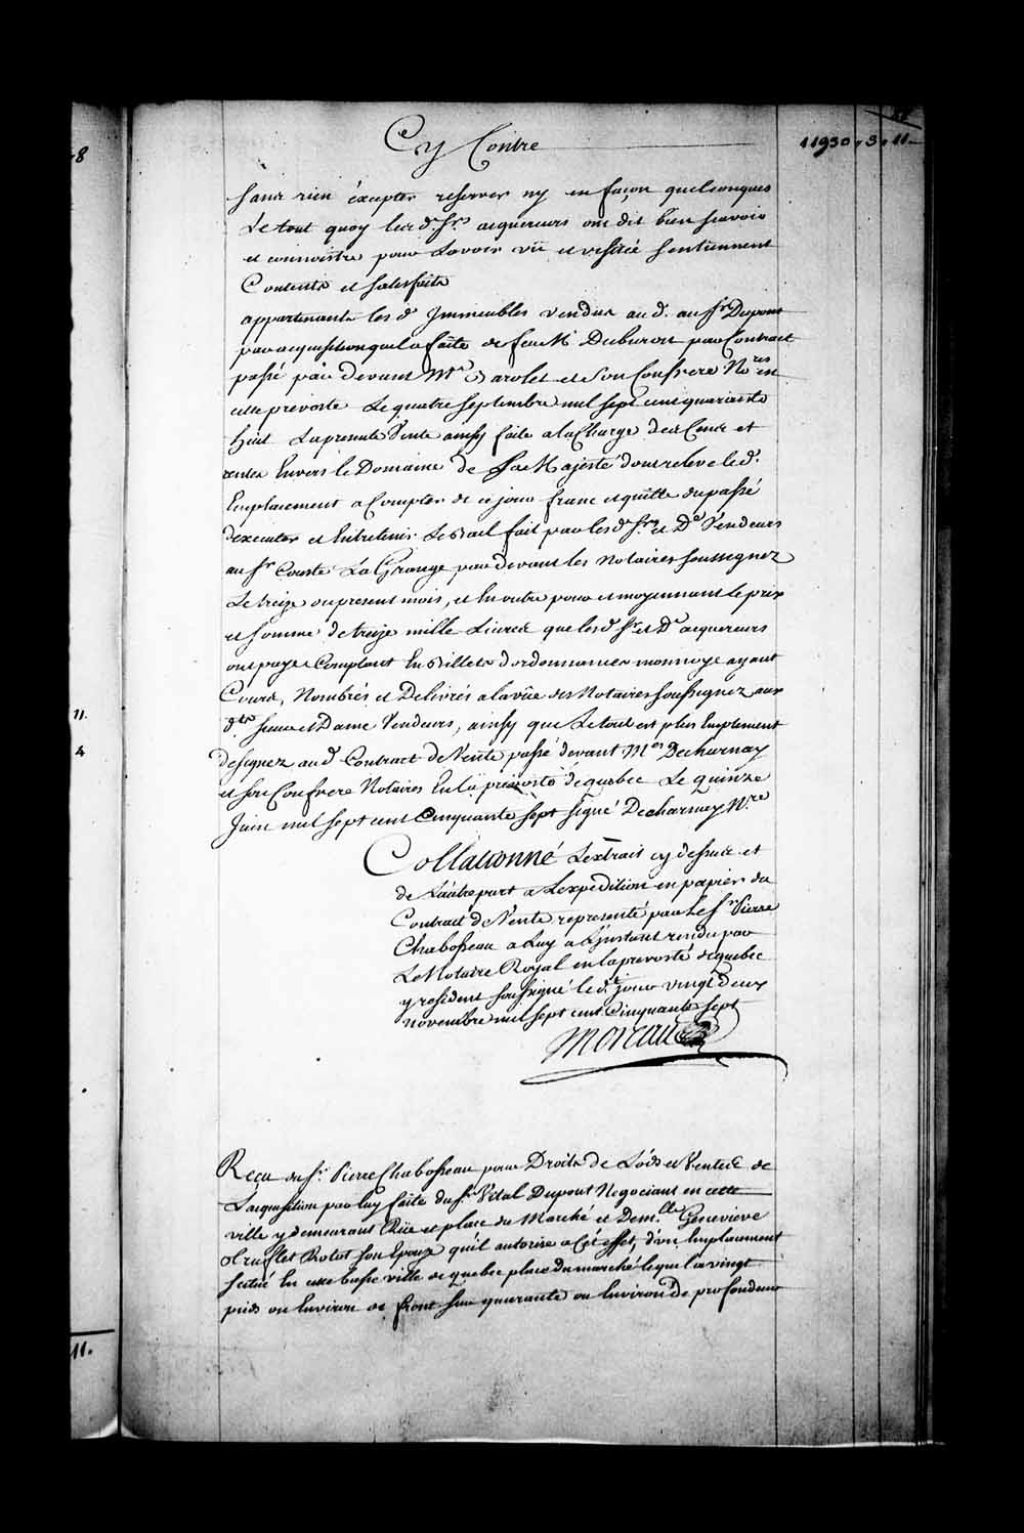 Cy Contre 11930. 3. 11.
8
sans rien excepter reserver ny en façon quelconques
Le tout quoy lesd. Srs. acquereurs ont dit bien sçavoir
et connoistre pour Lavoir vû et visitté sentiennent
Contents et satisfaits
appartenants les d. Immeubles vendus aud. Sr. Dupont
par acquisition quel a faite de feu M. Duburon par Contract
passé par devant Me. Barolet et son Confrere Nores en
cette prevosté Le quatre Septembre mil sept cent quarante
huit La presente Vente ainsy faite a la Charge des Cens et
rentes Envers le Domaine de Sa Majesté dont releve led.
Emplacement a Compter de ce jour franc et quitte du passé
d'executer et Entretenir Le Bail fait par lesd. Srs. et De. Vendeurs
au Sr. Courté La Grange par devant les Notaires soussignez
Le treize du present mois, et En outre pour et moyennant le prix
et somme de treize mille Livres que lesd. Sr. et De. acquereurs
ont payé Comptant En Billets d'ordonnances monnoye ayant
Cours, Nombrés et Delivrés a la vûe des Notaires soussignez aux
ds. sieur et Dame Vendeurs, ainsy que Le tout est plus Emplement
designez aud. Contract de Vente passé devant Mes. Decharnay
11.
et son Confrere Notaires En la prevosté de quebec Le quinze
4
Juin mil sept cent Cinquante sept signé Decharnay Nre.
Collationné Lextrait cy dessus et
de Lautre part a Lexpedition en papier du
Contract de Vente representé par Le Sr. Pierre
Chabosseau a Luy a Linstant rendu par
Le Notaire Royal en la prevosté de quebec
y resident soussigné led. jour vingt deux
novembre mil sept cent Cinquante sept
Moreau
Reçu du Sr. Pierre Chabosseau pour Droits de Lods et Ventes de
L'acquisition par luy faite du Sr. Vital Dupont Negociant en cette
ville y demeurant Rüe et place du Marché et Demlle. Genevieve
Bolot son Epouse qu'il autorise a Cet effet, d'un Emplacement
scitué En cette basse ville de quebec place du marché lequel a vingt
pieds ou Environ de front sur quarante ou Environ de profondeur
11.